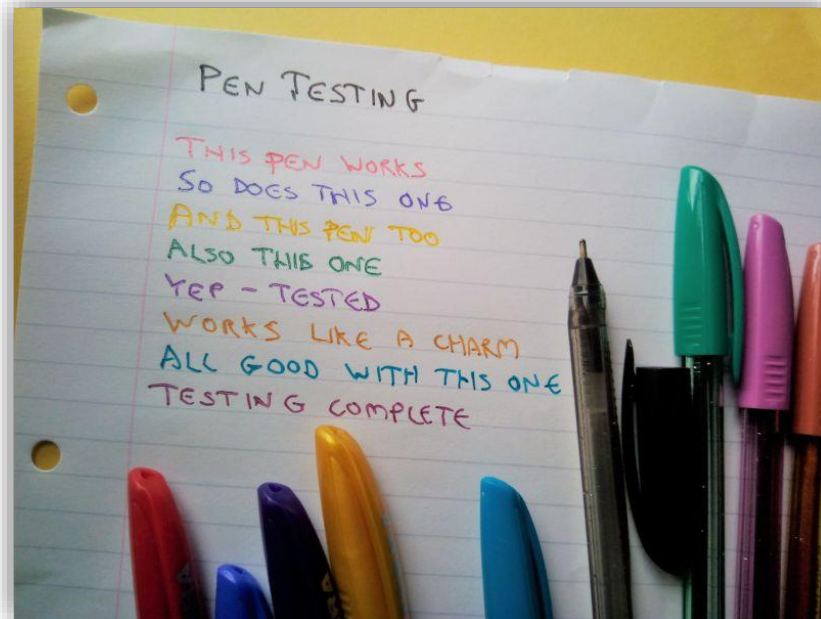 PEN TESTING
THIS PEN WORKS
SO DOES THIS ONE
AND THIS PEN TOO
ALSO THIS ONE
YEP - TESTED
WORKS LIKE A CHARM
ALL GOOD WITH THIS ONE
TESTING COMPLETE